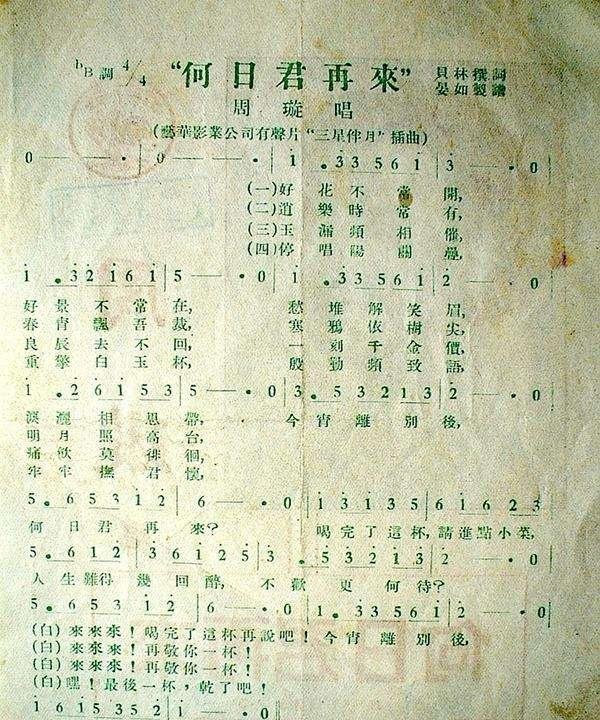 bB調 4/4 “何日君再來” 貝林撰詞
晏如製譜
周璇唱
(藝華影業公司有聲片“三星伴月”插曲)
0 — · 0 — · 1 .33561 3 — · 0
(一)好花不常開,
(二)道樂時常有,
(三)玉漏頻相催,
(四)停唱陽關疊,
1 .32161 5 — · 0 1 .33561 2 — · 0
好景不常在, 愁堆解笑眉,
春青飄吾裁, 寒鴉依樹尖,
良辰去不回, 一刻千金價,
重擎白玉杯, 殷勤頻致語,
1 .26153 5 — · 0 3 .53213 2 — · 0
淚灑相思帶, 今宵離別後,
明月照高台,
痛飲莫徘徊,
牢牢撫君懷,
5 .65312 6 — · 0 13135 61623
何日君再來? 喝完了這杯,請進點小菜,
5 .612 3612653 .53213 2 — · 0
人生難得幾回醉, 不歡更何待?
5 .65312 6 — · 0 1 .33561 2 — · 0
(白)來來來!喝完了這杯再說吧!今宵離別後,
(白)來來來!再敬你一杯!
(白)來來來!再敬你一杯!
(白)嘿!最後一杯,乾了吧!
1615352 1 — · 0